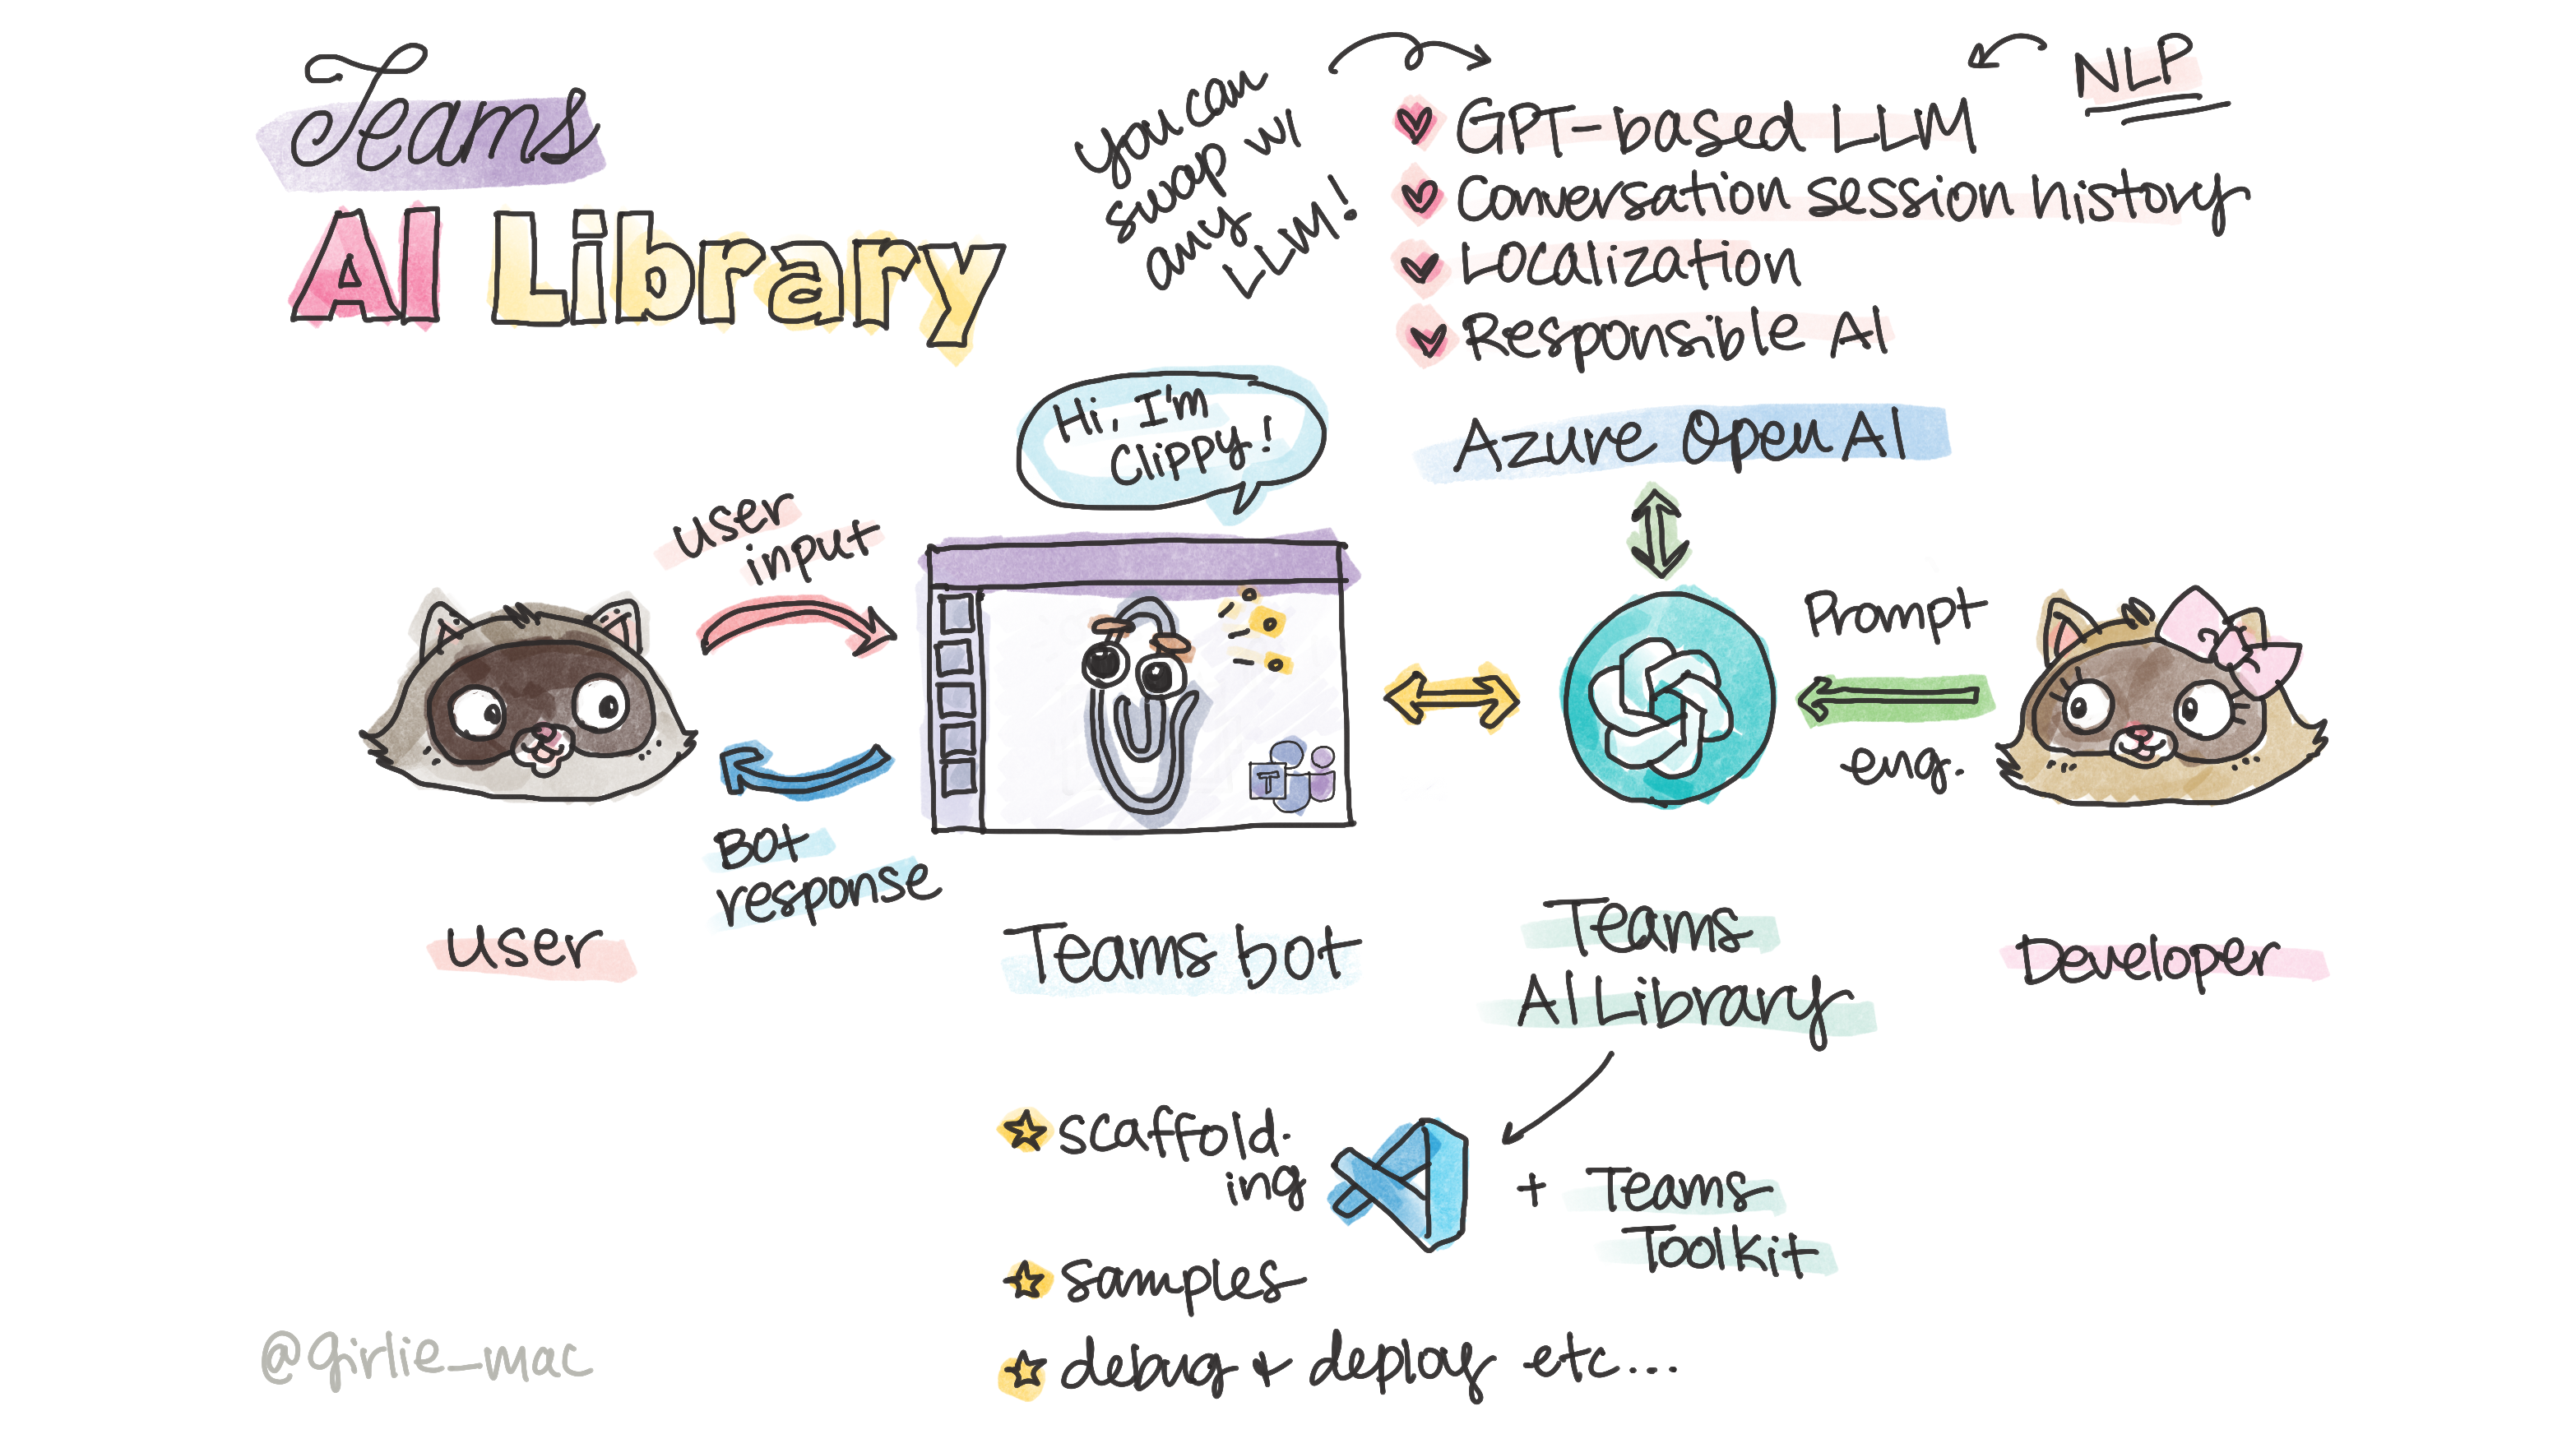 Teams
AI Library
you can
swap w/
any
LLM!
NLP
GPT-based LLM
Conversation session history
Localization
Responsible AI
Azure OpenAI
Hi, I'm
Clippy!
user
input
Bot
response
T
Prompt
eng.
user
Teams bot
Teams
AI Library
Developer
scaffold.
ing
+ Teams
Toolkit
samples
debug & deploy etc...
@girlie_mac